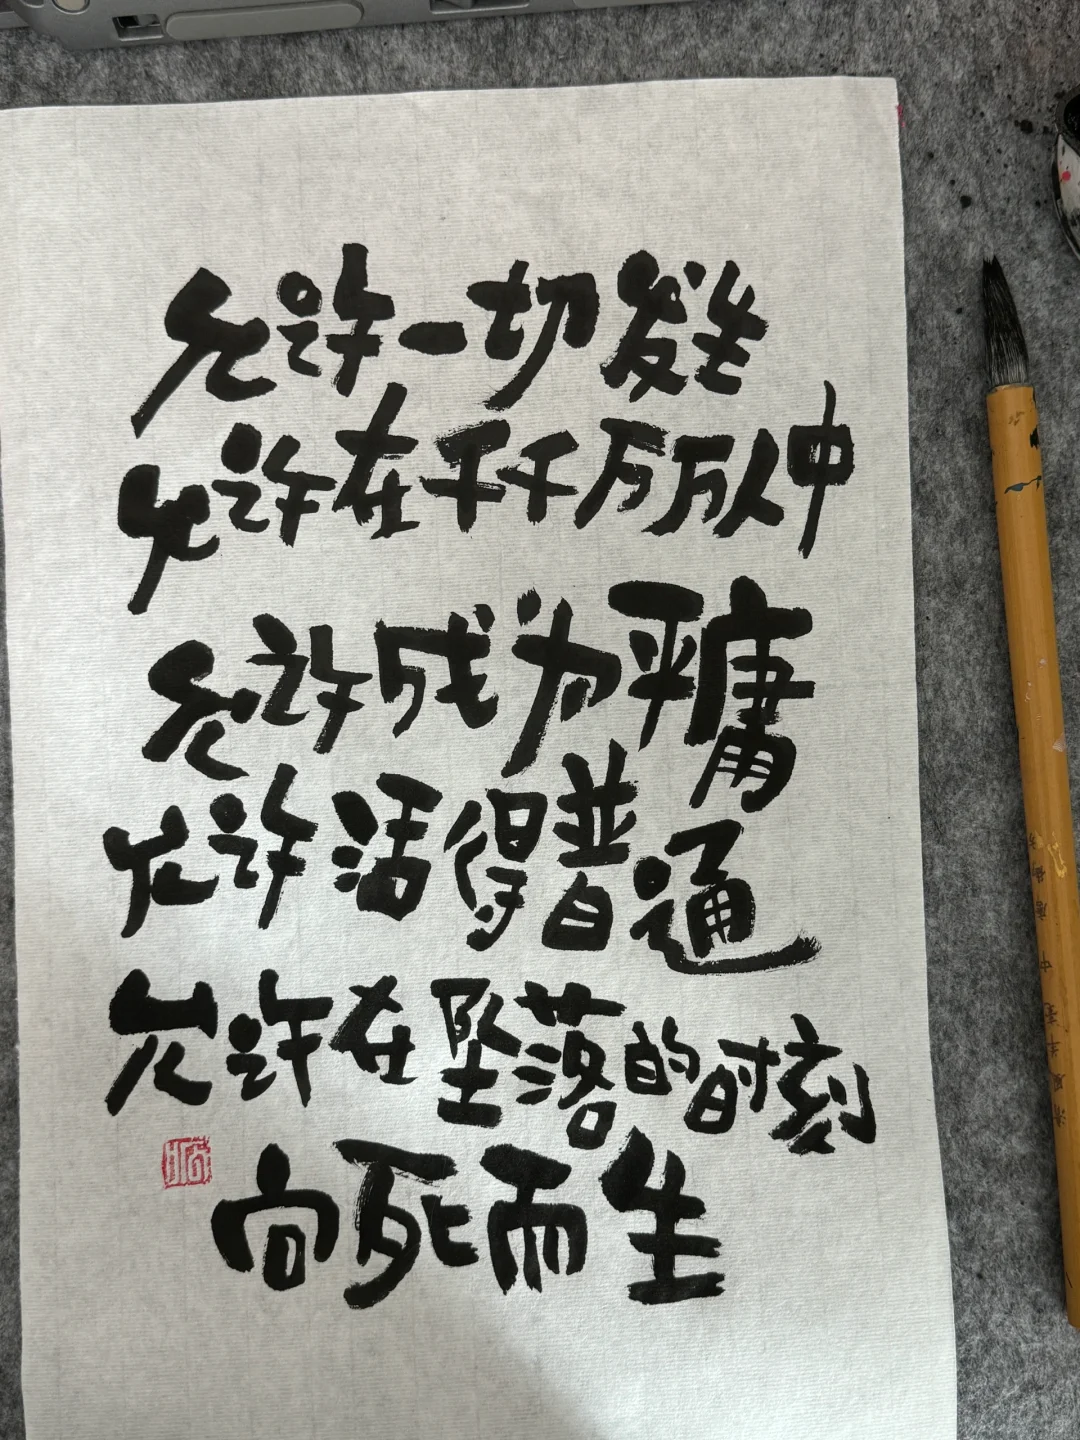 允许一切发生
允许在千千万万人中
允许成为平庸
允许活得普通
允许在坠落的时刻
向死而生